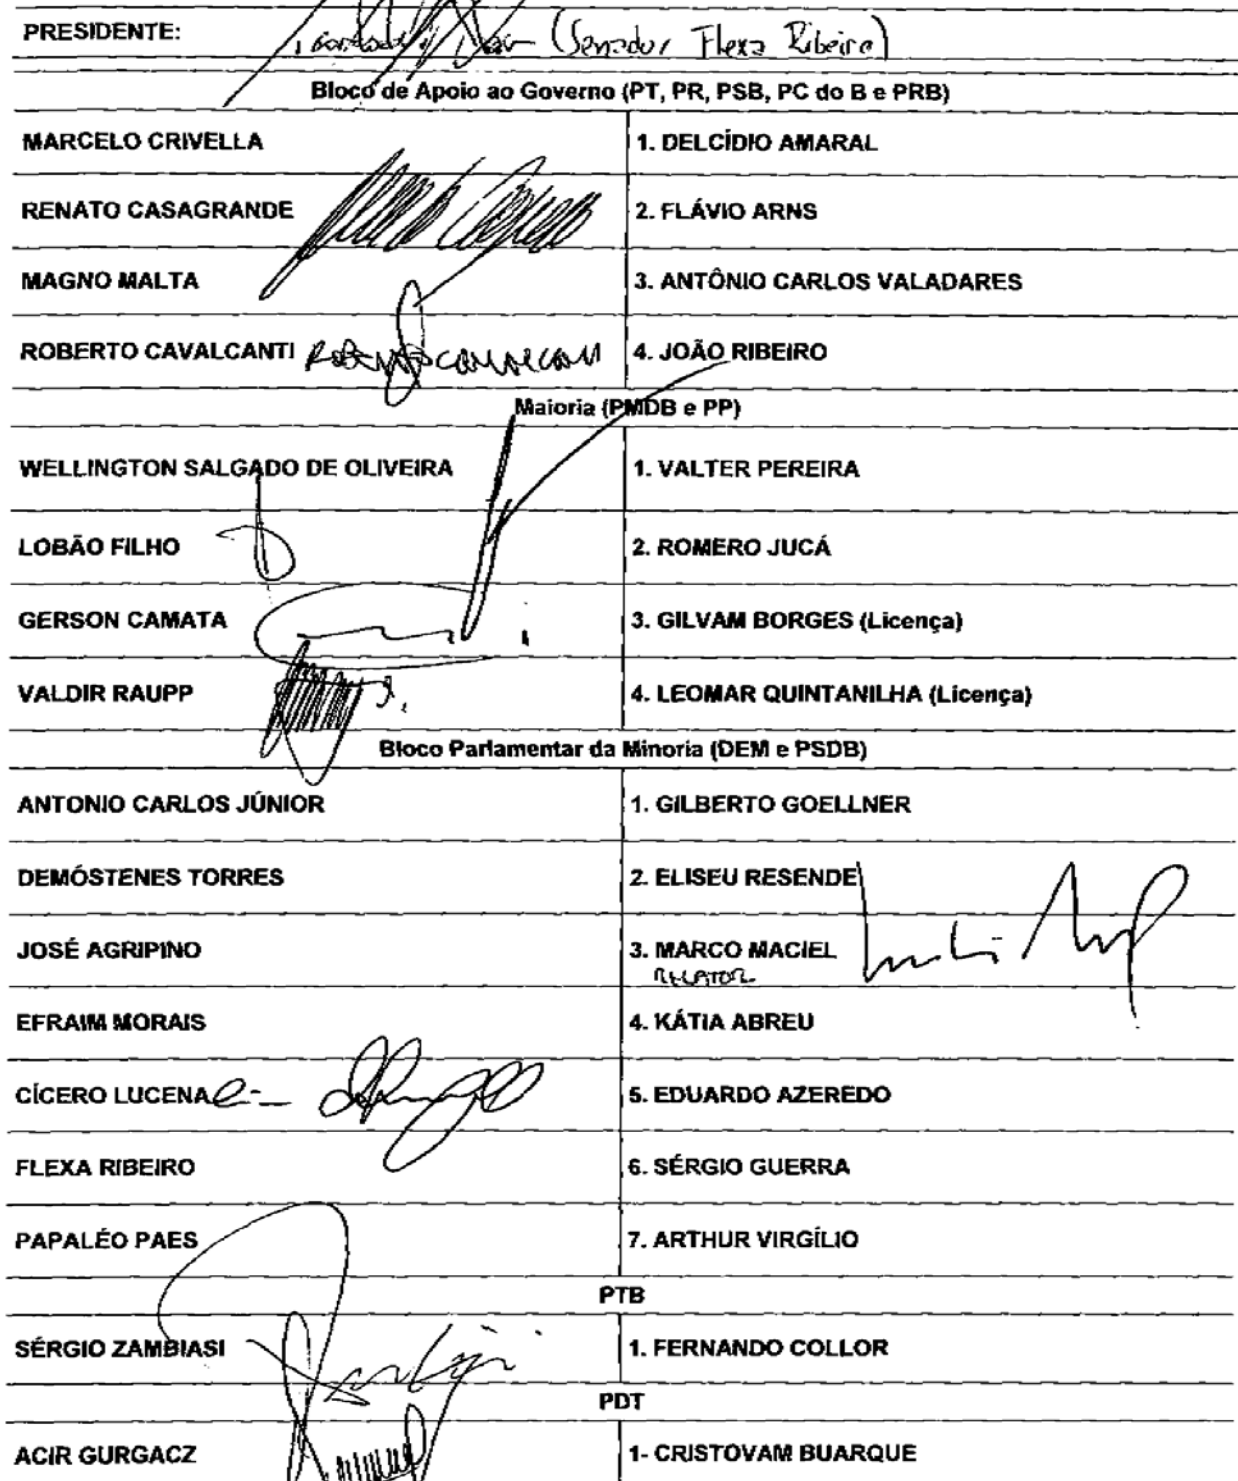 PRESIDENTE: (Senador Flexa Ribeiro)
Bloco de Apoio ao Governo (PT, PR, PSB, PC do B e PRB)
MARCELO CRIVELLA 1. DELCÍDIO AMARAL
RENATO CASAGRANDE 2. FLÁVIO ARNS
MAGNO MALTA 3. ANTÔNIO CARLOS VALADARES
ROBERTO CAVALCANTI 4. JOÃO RIBEIRO
Maioria (PMDB e PP)
WELLINGTON SALGADO DE OLIVEIRA 1. VALTER PEREIRA
LOBÃO FILHO 2. ROMERO JUCÁ
GERSON CAMATA 3. GILVAM BORGES (Licença)
VALDIR RAUPP 4. LEOMAR QUINTANILHA (Licença)
Bloco Parlamentar da Minoria (DEM e PSDB)
ANTONIO CARLOS JÚNIOR 1. GILBERTO GOELLNER
DEMÓSTENES TORRES 2. ELISEU RESENDE
JOSÉ AGRIPINO 3. MARCO MACIEL
RELATOR
EFRAIM MORAIS 4. KÁTIA ABREU
CÍCERO LUCENA 5. EDUARDO AZEREDO
FLEXA RIBEIRO 6. SÉRGIO GUERRA
PAPALÉO PAES 7. ARTHUR VIRGÍLIO
PTB
SÉRGIO ZAMBIASI 1. FERNANDO COLLOR
PDT
ACIR GURGACZ 1- CRISTOVAM BUARQUE